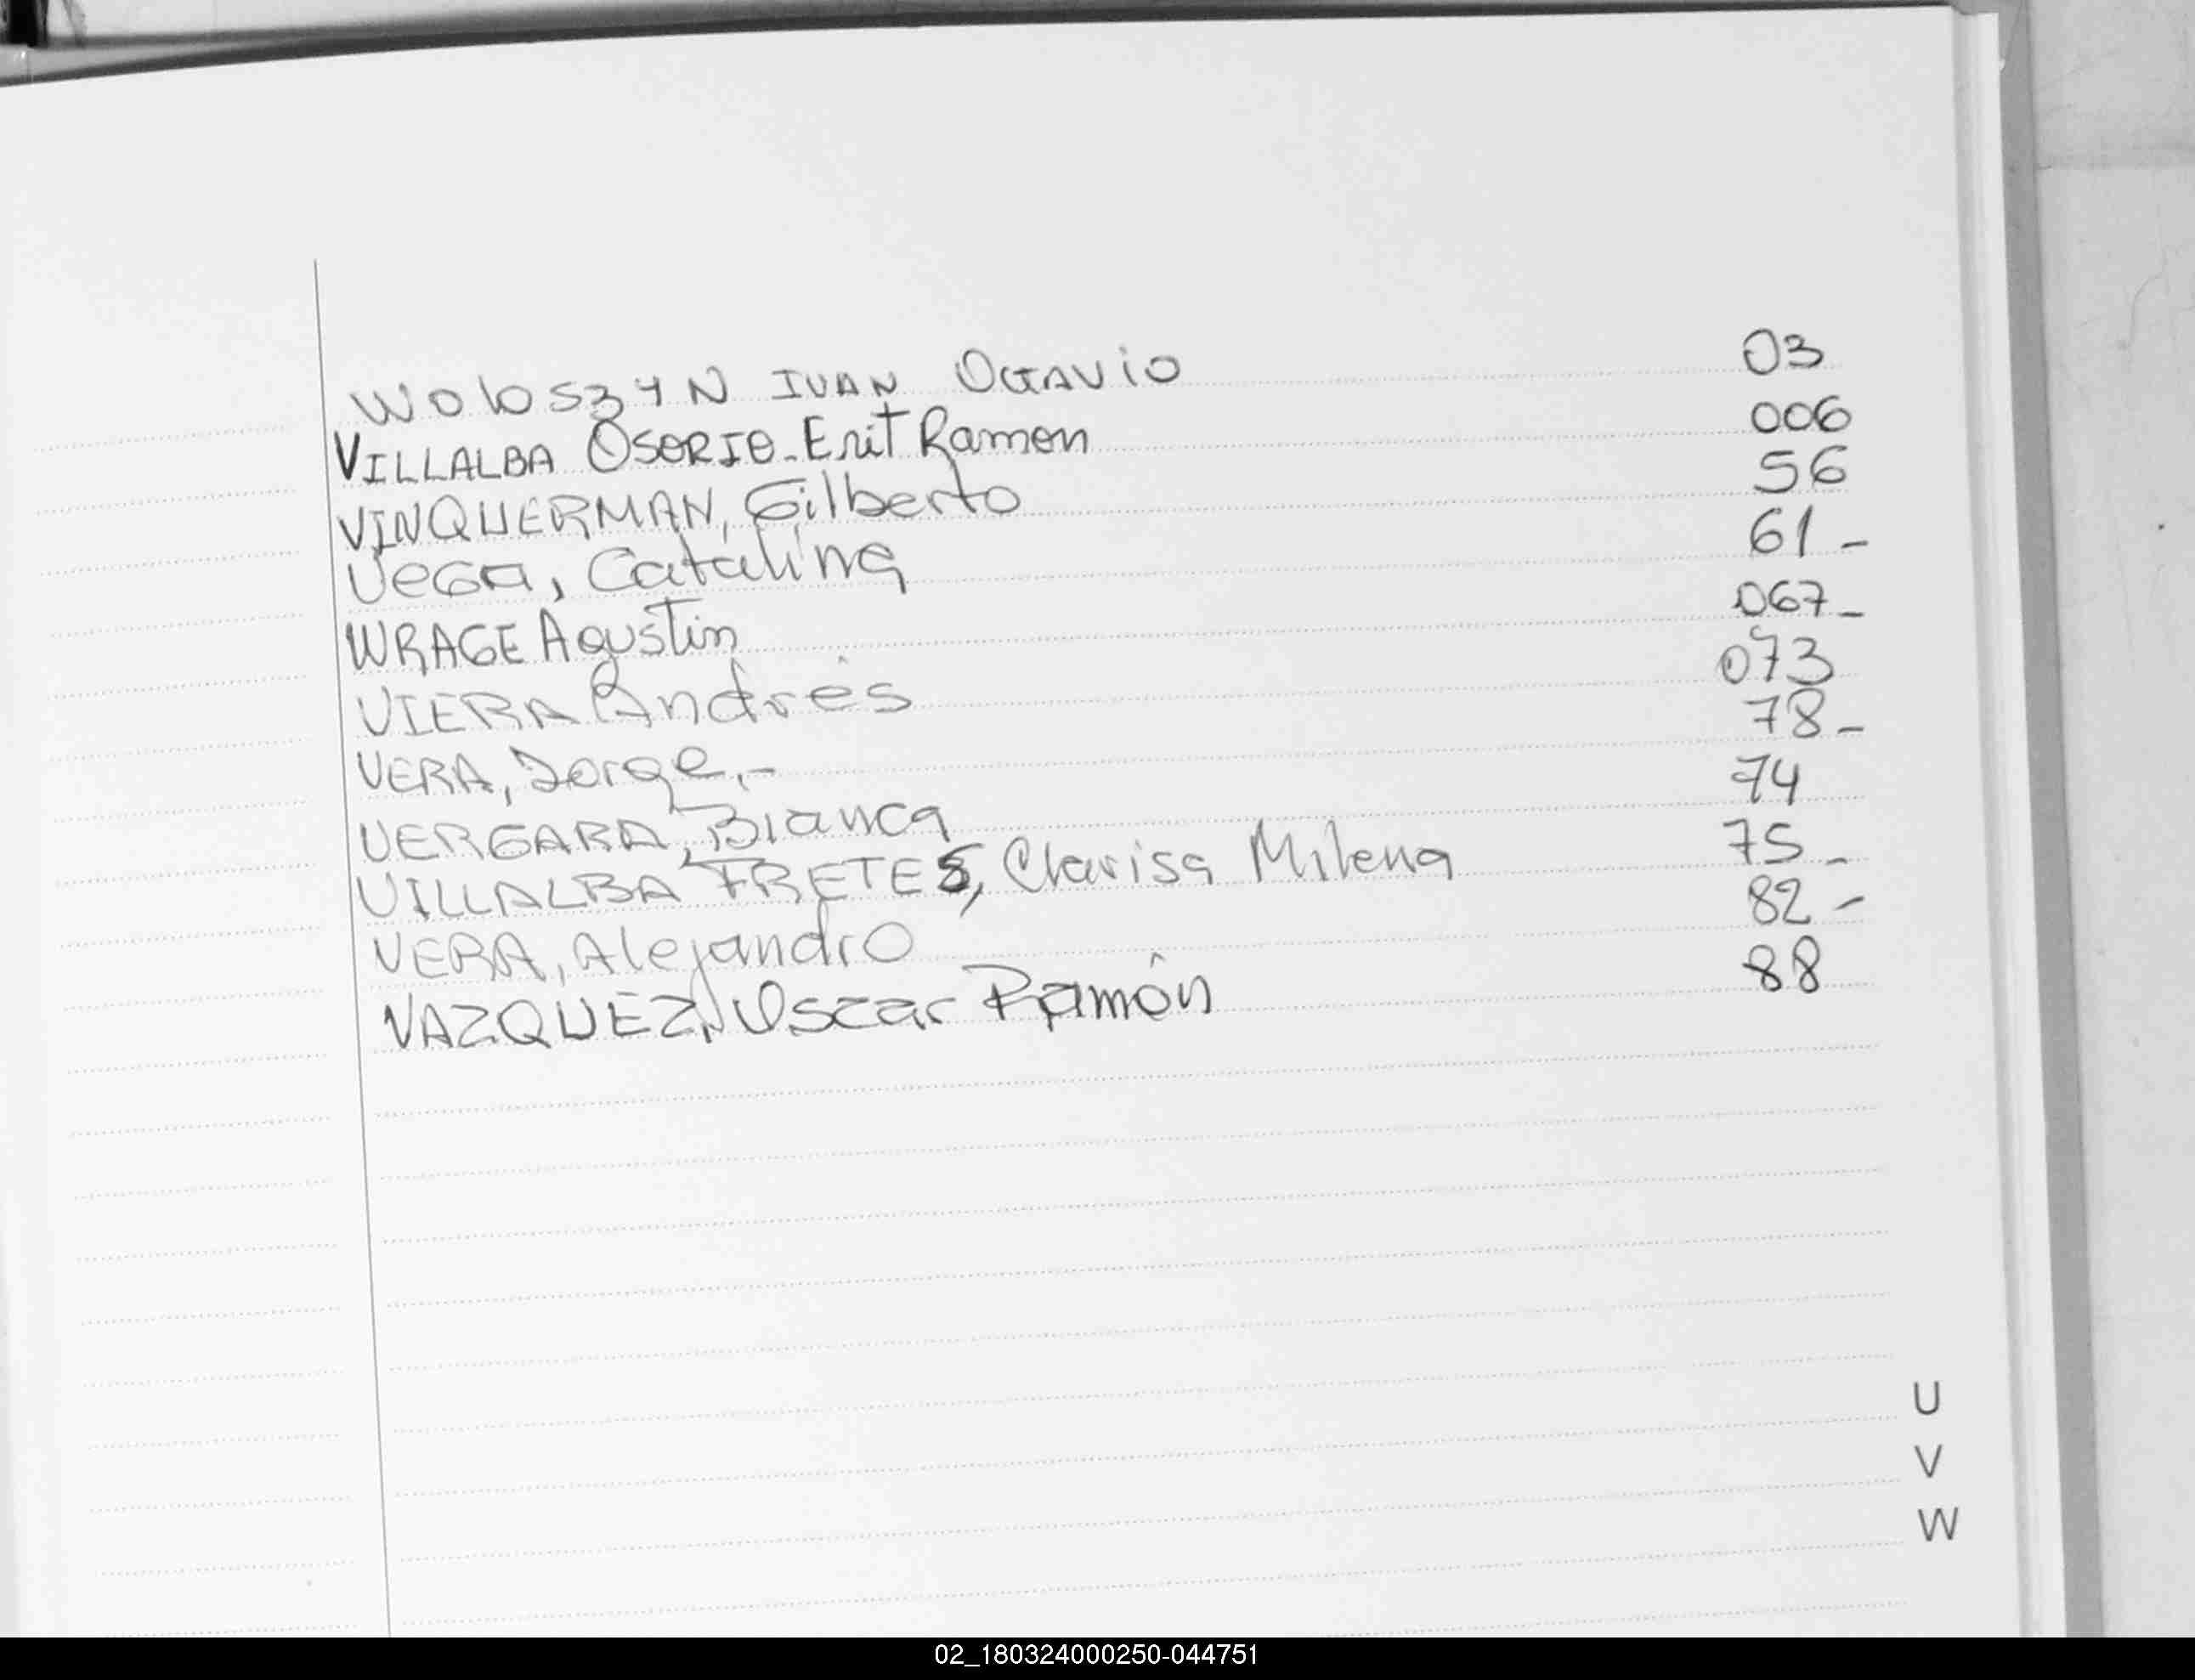 WOloSZYN IVAN OCTAViO 03
VILLALBA OSORIO - Erit Ramon 006
VINQUERMAN, Gilberto 56
VEGA, Catalina 61 -
WRAGE Agustin 067 -
VIERA Andrés 073
VERA, Jorge.- 78 -
VERGARA, Bianca 74
VILLALBA FRETES, Clarisa Milena 75 -
VERA, Alejandro 82 -
VAZQUEZ, Oscar Ramón 88
U
V
W
02_180324000250-044751